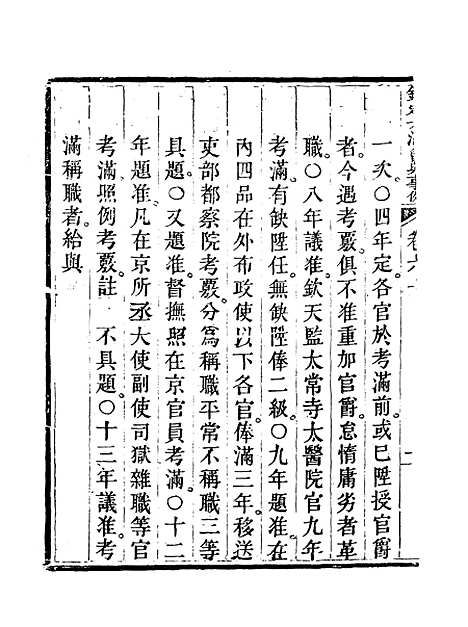 欽定大清會典事例 卷六十
一次。○四年定各官於考滿前或已陞授官爵
者今遇考覈俱不准重加官爵怠惰庸劣者革
職○八年議准欽天監太常寺太醫院官九年
考滿有缺陞任無缺陞俸二級○九年題准在
內四品在外布政使以下各官俸滿三年移送
吏部都察院考覈分爲稱職平常不稱職三等
具題○又題准督撫照在京官員考滿○十二
年題准凡在京所丞大使副使司獄雜職等官
考滿照例考覈註 不具題○十三年議准考
滿稱職者給與